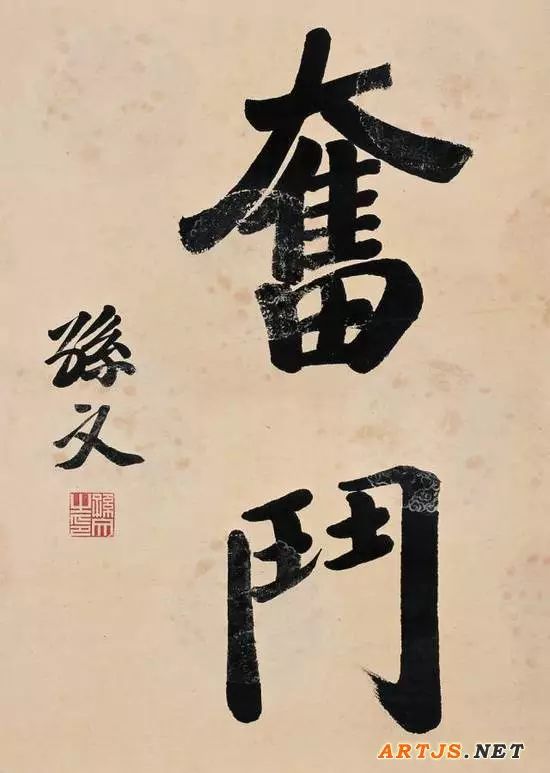 奮鬥
孫文
孫文之印
ARTJS.NET